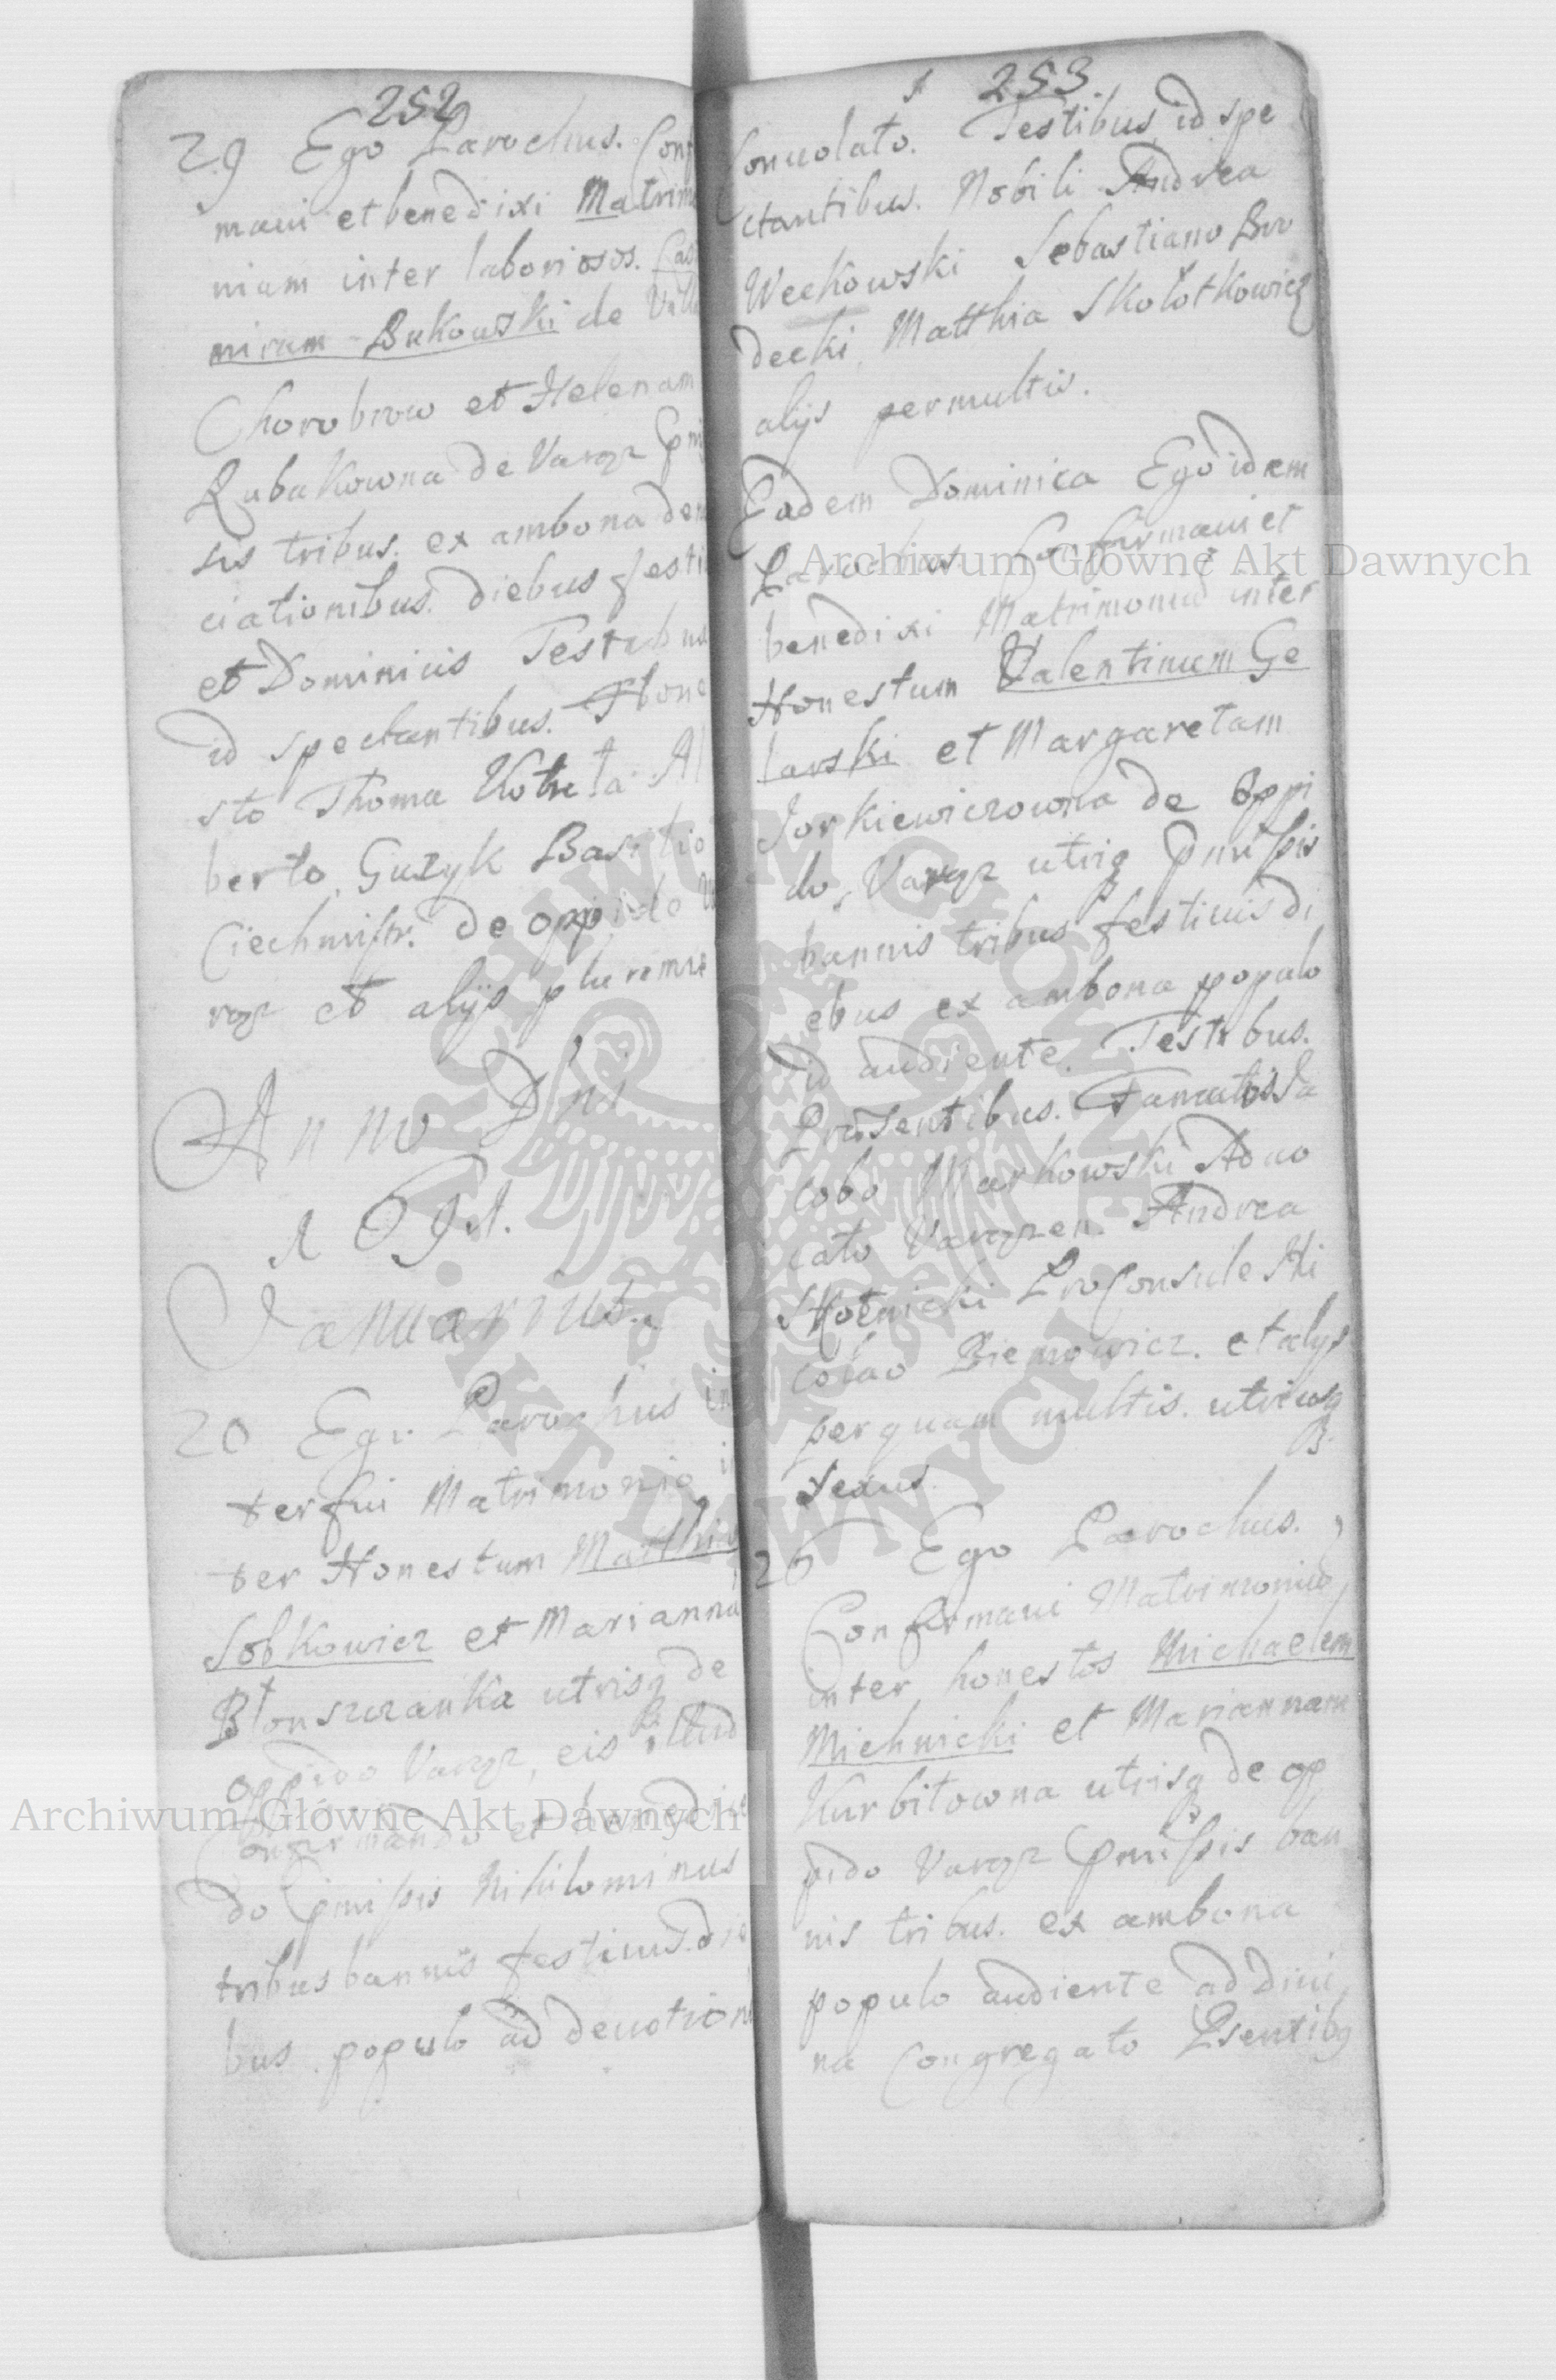 252
29 Ego Parochus. Conf
maui et benedixi Matrim
nium inter laboriosos. Cas
mirum Bukowski de Villa
Chorobrow et Helenam
Rubakowna de Varęz
sis tribus. ex ambona den
ciationibus. diebus festi
et Dominicis Testibus
id spectantibus. Hone
sto Thoma Al
berto Guzyk Basilio
de oppido
ręz et alijs plurimis
Anno Dni
1691.
Januarius.
20 Ego Parochus in
terfui Matrimonio
ter Honestum Matthia
Sobkowicz et Marianna
utrisq de
oppido Varęz, eis illud
Confirmando et benedice
do pmissis Nihilominus
tribus bannis festiuis. die
bus populo ad deuotion
253.
Conuolato. Testibus id spe
ctantibus. Nobili Andrea
Weckowski Sebastiano Bro
decki Matthia Skolotkowicz
alijs permultis.
Eadem Dominica Ego idem
Parochus Confirmaui et
benedixi Matrimoniu inter
Honestum Valentinum Ge
larski et Margaretam
Jorkiewiczowna de Oppi
do Varęz utrisq pmissis
bannis tribus festiuis di
ebus ex ambona populo
id audiente. Testibus.
Præsentibus. Famatis Ja
cobo Markowski Aduo
cato Varęzen. Andrea
ProConsule Ni
colao Biernowicz. et alijs
perquam multis. utriusq
sexus.
26 Ego Parochus.
Confirmaui Matrimoniu
inter honestos Michaelem
Michnicki et Mariannam
Kurbitowna utrisq de op
pido Varęz pmissis ban
nis tribus. ex ambona
populo audiente ad Diui
na Congregato Psentibq